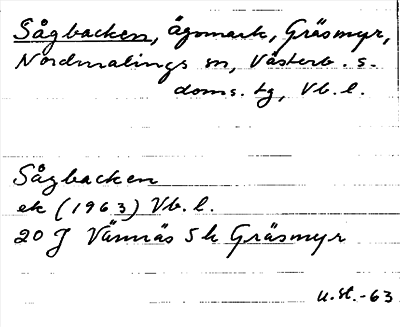 Sågbacken, ägomark, Gräsmyr,
Nordmalings sn, Västerb. s.
doms. tg, Vb. l.
Sågbacken
ek (1963) Vb. l.
20 J Vännäs 5 k Gräsmyr
u.st.-63